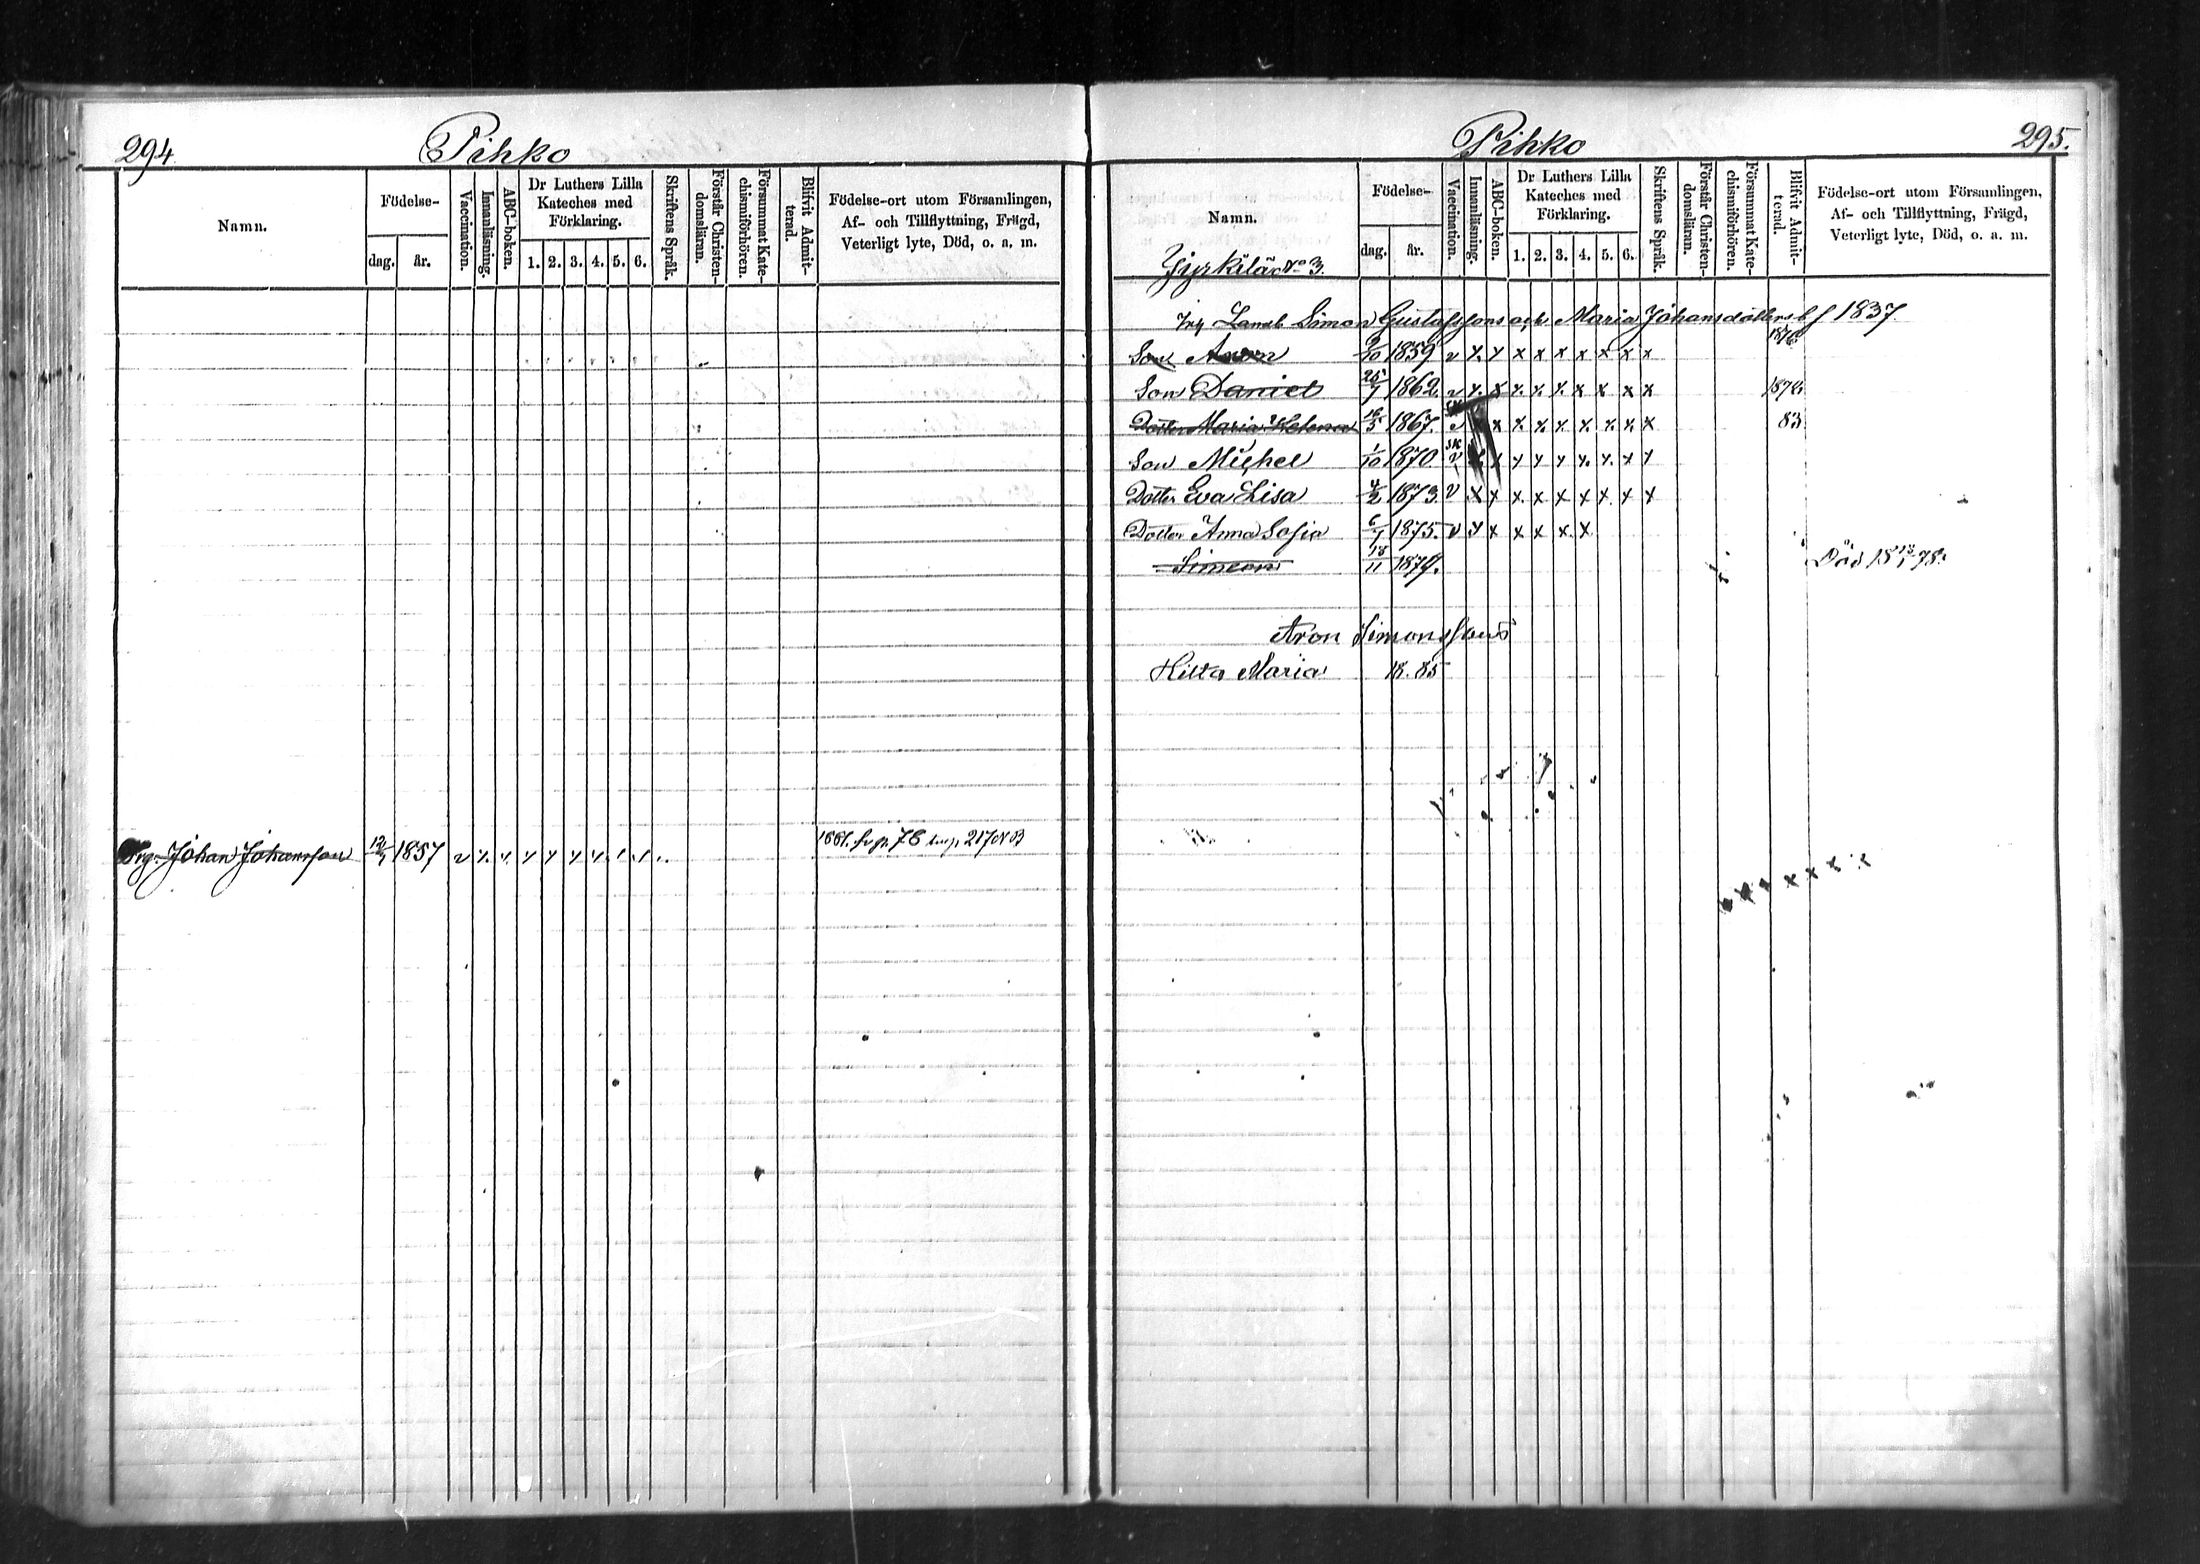 294
Pihko
Namn.
Födelse-
dag. år.
Vaccination.
Innanläsning.
ABC-boken.
Dr Luthers Lilla Kateches med Förklaring.
1. 2. 3. 4. 5. 6.
Skriftens Språk.
Förstår Christendomsläran.
Försummat Katechismiförhören.
Blifvit Admitterad.
Födelse-ort utom Församlingen,
Af- och Tillflyttning, Frägd,
Veterligt lyte, Död, o. a. m.
Johan Johansson 12/1 1857 v x x x x x x x x 1881. 78 217
Pihko
295.
Namn.
Födelse-
dag. år.
Vaccination.
Innanläsning.
ABC-boken.
Dr Luthers Lilla Kateches med Förklaring.
1. 2. 3. 4. 5. 6.
Skriftens Språk.
Förstår Christendomsläran.
Försummat Katechismiförhören.
Blifvit Admitterad.
Födelse-ort utom Församlingen,
Af- och Tillflyttning, Frägd,
Veterligt lyte, Död, o. a. m.
No 3.
Simon Gustafssons och Maria Johansdotters bf 1837
Son Aron 1859 v x x x x x x x x x 1876
Son Daniel 25/7 1862. v x x x x x x x x x
Dotter Maria Helena 16/5 1867. x x x x x x x x 83
Son Michel 1/10 1870 v x x x x x x x x
Dotter Eva Lisa 4/2 1873. v x x x x x x x x x
Dotter Anna Sofia 6/7 1875. v x x x x x x
Simeon 18/11 1877. Död 18 78.
Aron Simonssons
Hilta Maria 18.85